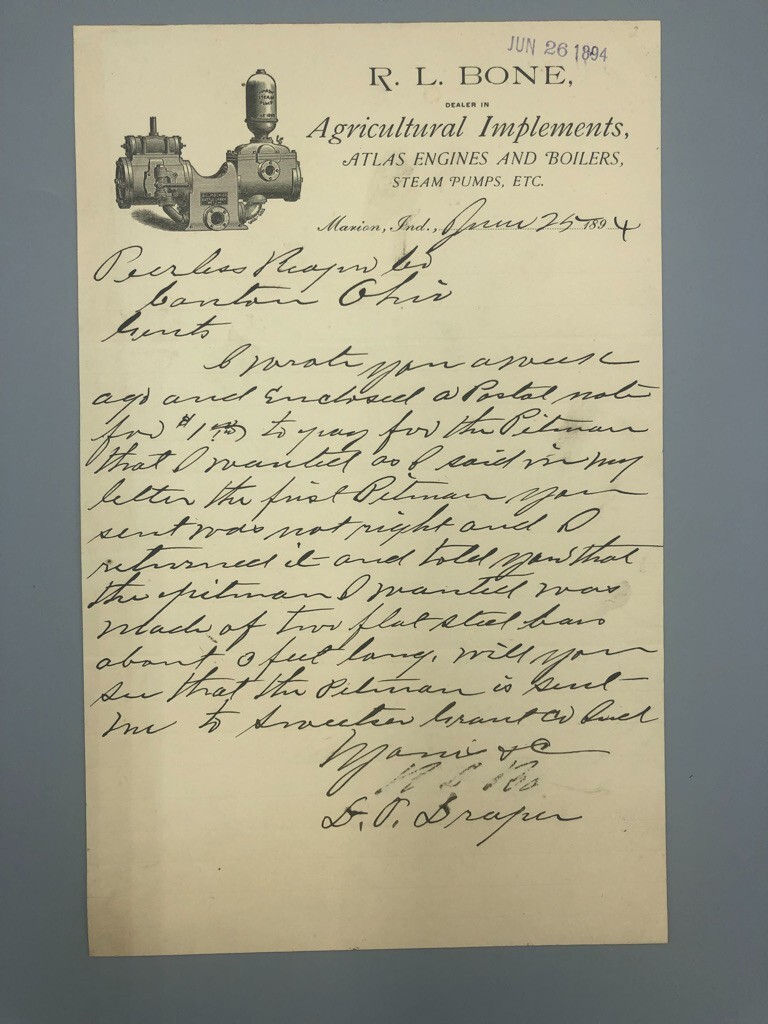 JUN 26 1894
R. L. BONE,
DEALER IN
Agricultural Implements,
ATLAS ENGINES AND BOILERS,
STEAM PUMPS, ETC.
Marion, Ind., June 25 1894
Peerless Reaper Co
Canton Ohio
Gents
I wrote you a week
ago and Enclosed a Postal note
for $1 to pay for the Pitman
that I wanted as I said in my
letter the first Pitman you
sent was not right and I
returned it and told you that
the pitman I wanted was
made of two flat steel bars
about 3 feet long. will you
see that the Pitman is sent
me to Sweetser Grant Co Ind
Yours &c
D. P. Draper